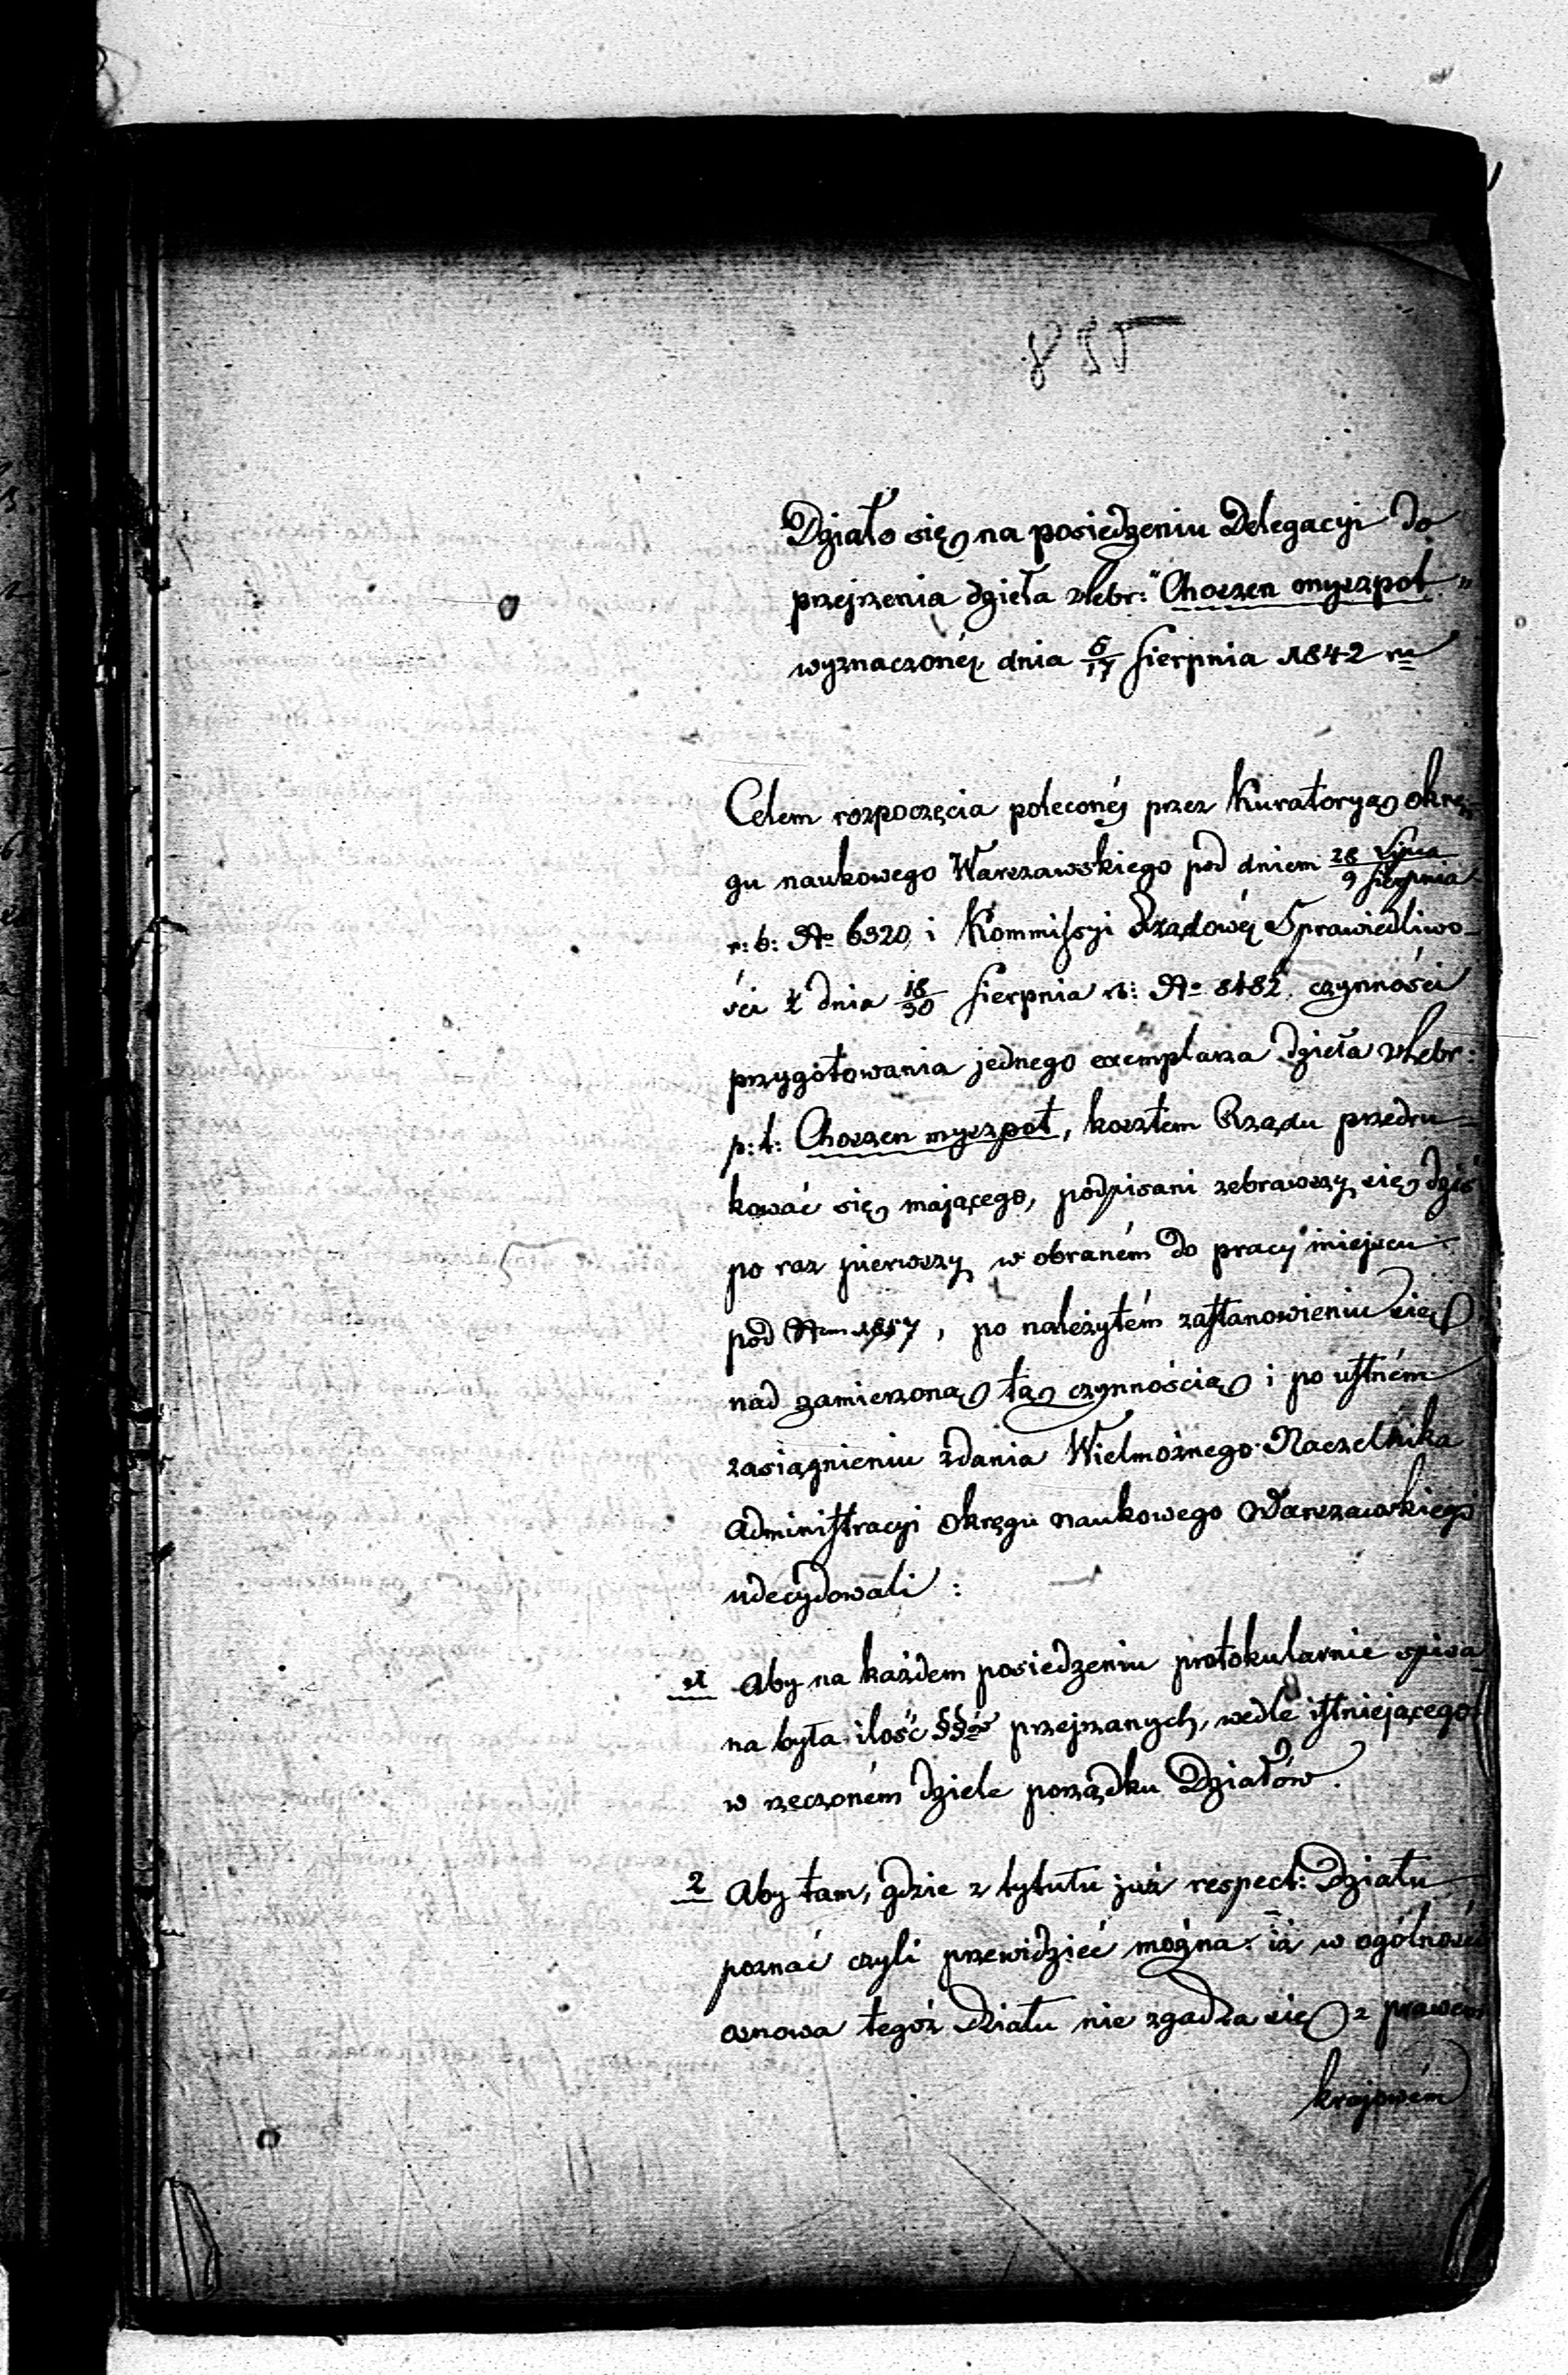 885
Działo się na posiedzeniu Delegacyi do
przejrzenia dzieła zhebr: "Choszen myszpot"
wyznaczonéj, dnia 5/17 Sierpnia 1842 ru
Celem rozpoczęcia poleconéj przez Kuratoryą okrę-
gu naukowego Warszawskiego pod dniem 28 Lipca / 9 Sierpnia
r: b: No 6320, i Kommissyi Rządowéj Sprawiedliwo-
ści z dnia 18/30 Sierpnia r: No 8482, czynności
przygotowania jednego exemplarza dzieła zhebr:
p: t: Choszen myszpot, kosztem Rządu przedru-
kować się mającego, podpisani zebrawszy się dziś
po raz pierwszy w obraném do pracy miejscu
pod Nem 1857, po należytém zastanowieniu się
nad zamierzoną tą czynnością i po ustném
zasiągnieniu zdania Wielmożnego Naczelnika
Administracyi Okręgu naukowego Warszawskiego
udecydowali:
1 Aby na każdem posiedzeniu protokularnie spisa-
na była ilość §§ów przejrzanych, wedle istniejącego
w rzeczoném dziele porządku Działów.
2 Aby tam, gdzie z tytułu już respect: Działu
poznać czyli przewidzieć można: iż w ogólności
osnowa tegoż Działu nie zgadza się z prawem
krajowém